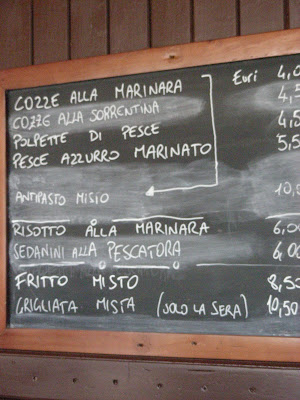 COZZE ALLA MARINARA Euri 4,0
COZZE ALLA SORRENTINA 4,5
POLPETTE DI PESCE 4,5
PESCE AZZURRO MARINATO 5,5
ANTIPASTO MISTO 10,0
RISOTTO ALLA MARINARA 6,00
SEDANINI ALLA PESCATORA 6,00
FRITTO MISTO 8,50
GRIGLIATA MISTA (SOLO LA SERA) 10,50